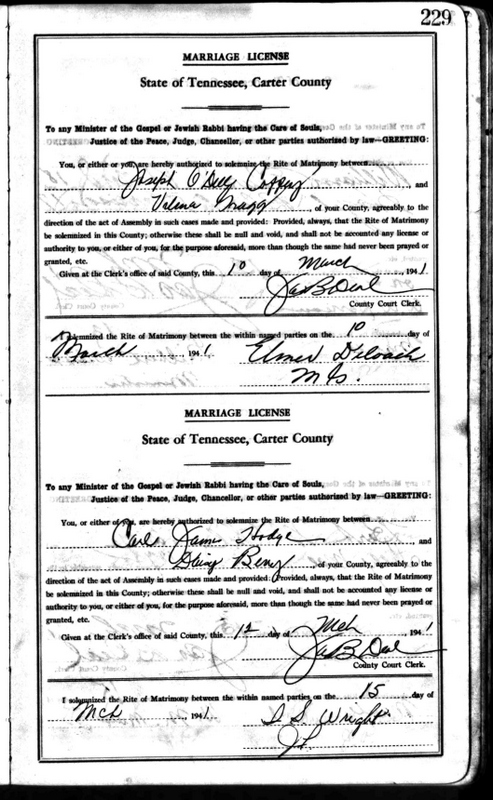 229
MARRIAGE LICENSE
State of Tennessee, Carter County
To any Minister of the Gospel or Jewish Rabbi having the Care of Souls,
Justice of the Peace, Judge, Chancellor, or other parties authorized by law—GREETING:
You, or either or you, are hereby authorized to solemnize the Rite of Matrimony between
Joseph O'Dell and
Velma of your County, agreeably to the
direction of the act of Assembly in such cases made and provided: Provided, always, that the Rite of Matrimony
be solemnized in this County; otherwise these shall be null and void, and shall not be accounted any license or
authority to you, or either of you, for the purpose aforesaid, more than though the same had never been prayed or
granted, etc.
Given at the Clerk's office of said County, this 10 day of March 1941
Jas B Deal
County Court Clerk.
solemnized the Rite of Matrimony between the within named parties on the 10 day of
March, 1941 Elmer Deloach
M G.
MARRIAGE LICENSE
State of Tennessee, Carter County
To any Minister of the Gospel or Jewish Rabbi having the Care of Souls,
Justice of the Peace, Judge, Chancellor, or other parties authorized by law—GREETING:
You, or either of you, are hereby authorized to solemnize the Rite of Matrimony between
Carl James Hodge and
Daisy Berry of your County, agreeably to the
direction of the act of Assembly in such cases made and provided: Provided, always, that the Rite of Matrimony
be solemnized in this County; otherwise these shall be null and void, and shall not be accounted any license or
authority to you, or either of you, for the purpose aforesaid, more than though the same had never been prayed or
granted, etc.
Given at the Clerk's office of said County, this 12 day of Mch 1941
Jas B Deal
County Court Clerk.
I solemnized the Rite of Matrimony between the within named parties on the 15 day of
Mch, 1941. D. S. Wright